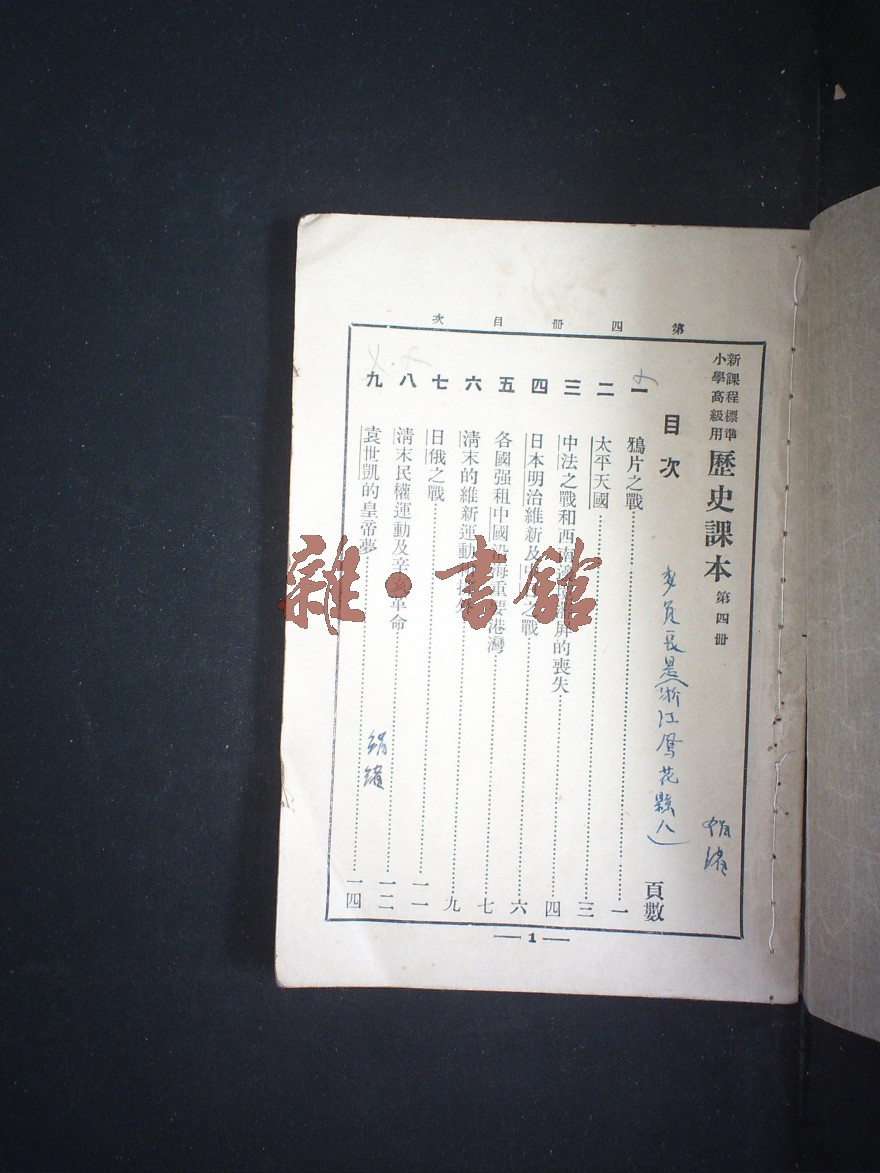 第四冊目次
新課程標準
小學高級用
歷史課本 第四冊
目次
頁數
一 鴉片之戰 一
二 太平天國 三
三 中法之戰和西南 的喪失 四
四 日本明治維新及 之戰 六
五 各國强租中國沿海重要港灣 七
六 清末的維新運動 九
七 日俄之戰 一一
八 清末民權運動及辛亥革命 一二
九 袁世凱的皇帝夢 一四
長是浙江鳳花縣人
1
雜·書館